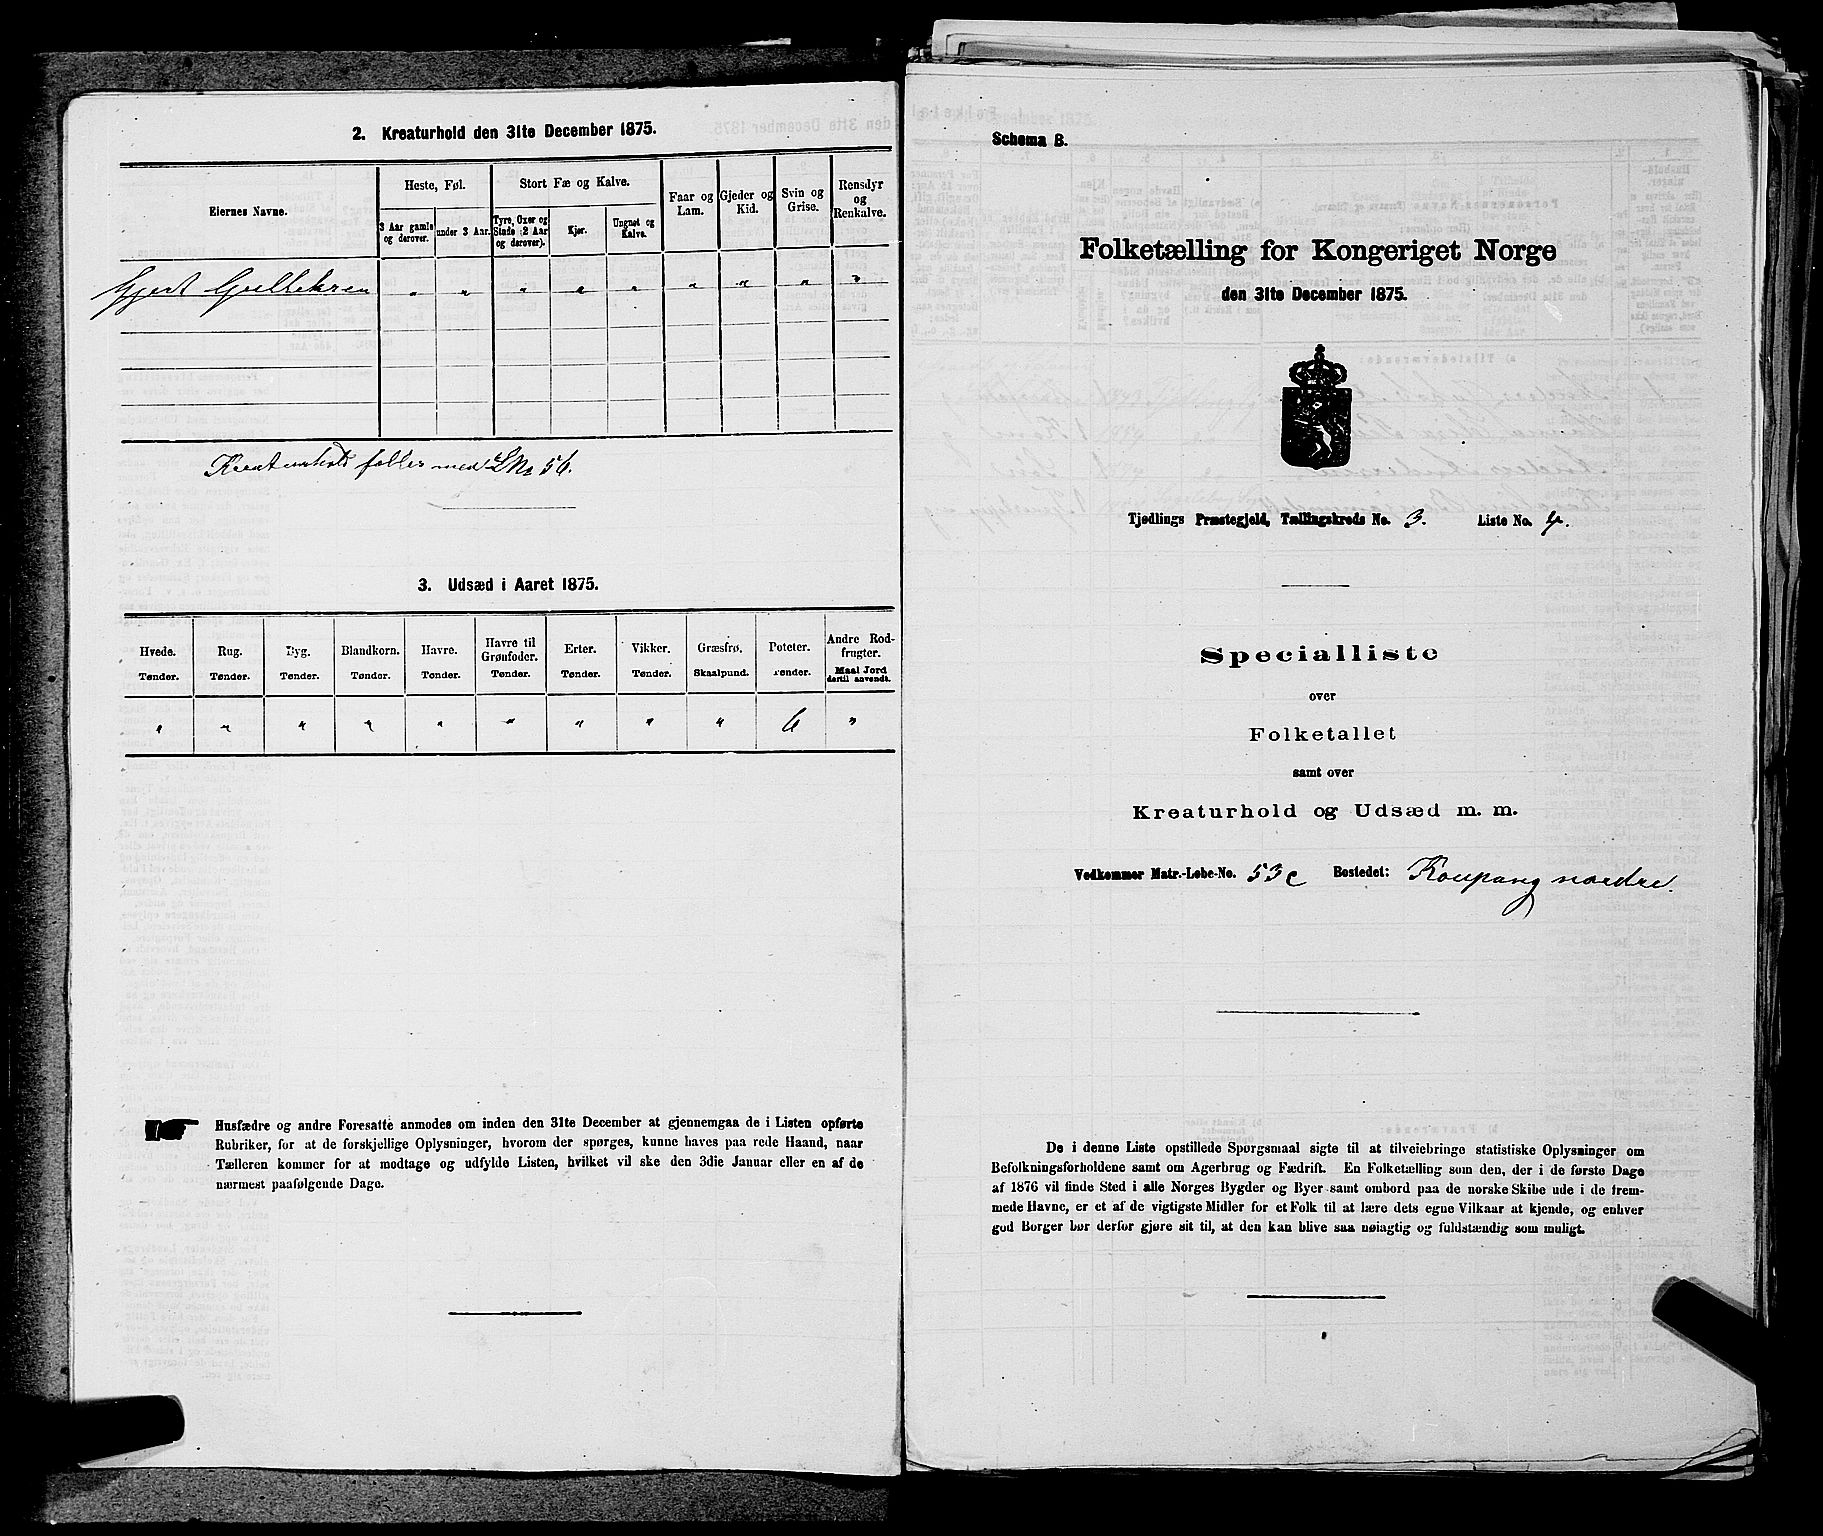 2. Kreaturhold den 31te December 1875.
Eiernes Navne.
Heste, Føl.
3 Aar gamle og derover.
under 3 Aar.
Stort Fæ og Kalve.
Tyre, Oxer og Stude (2 Aar og derover).
Kjør.
Ungnøt og Kalve.
Faar og Lam.
Gjeder og Kid.
Svin og Grise.
Rensdyr og Renkalve.
Gjert " " " " " " " " "
Kreaturhold felles med LNo 56.
3. Udsæd i Aaret 1875.
Hvede. Rug. Byg. Blandkorn. Havre. Havre til Grønfoder. Erter. Vikker. Græsfrø. Poteter. Andre Rodfrugter.
Tønder. Tønder. Tønder. Tønder. Tønder. Tønder. Tønder. Tønder. Skaalpund. Tønder. Maal Jord dertil anvendt.
" " " " " " " " " 6 "
Husfædre og andre Foresatte anmodes om inden den 31te December at gjennemgaa de i Listen opførte
Rubriker, for at de forskjellige Oplysninger, hvorom der spørges, kunne haves paa rede Haand, naar
Tælleren kommer for at modtage og udfylde Listen, hvilket vil ske den 3die Januar eller en af de
nærmest paafølgende Dage.
Schema B.
Folketælling for Kongeriget Norge
den 31te December 1875.
Tjødlings Præstegjeld, Tællingskreds No. 3. Liste No. 4.
Specialliste
over
Folketallet
samt over
Kreaturhold og Udsæd m. m.
Vedkommer Matr.-Løbe-No. 53c Bostedet: Koupang nordre.
De i denne Liste opstillede Spørgsmaal sigte til at tilveiebringe statistiske Oplysninger om
Befolkningsforholdene samt om Agerbrug og Fædrift. En Folketælling som den, der i de første Dage
af 1876 vil finde Sted i alle Norges Bygder og Byer samt ombord paa de norske Skibe ude i de frem-
mede Havne, er et af de vigtigste Midler for et Folk til at lære dets egne Vilkaar at kjende, og enhver
god Borger bør derfor gjøre sit til, at den kan blive saa nøiagtig og fuldstændig som muligt.